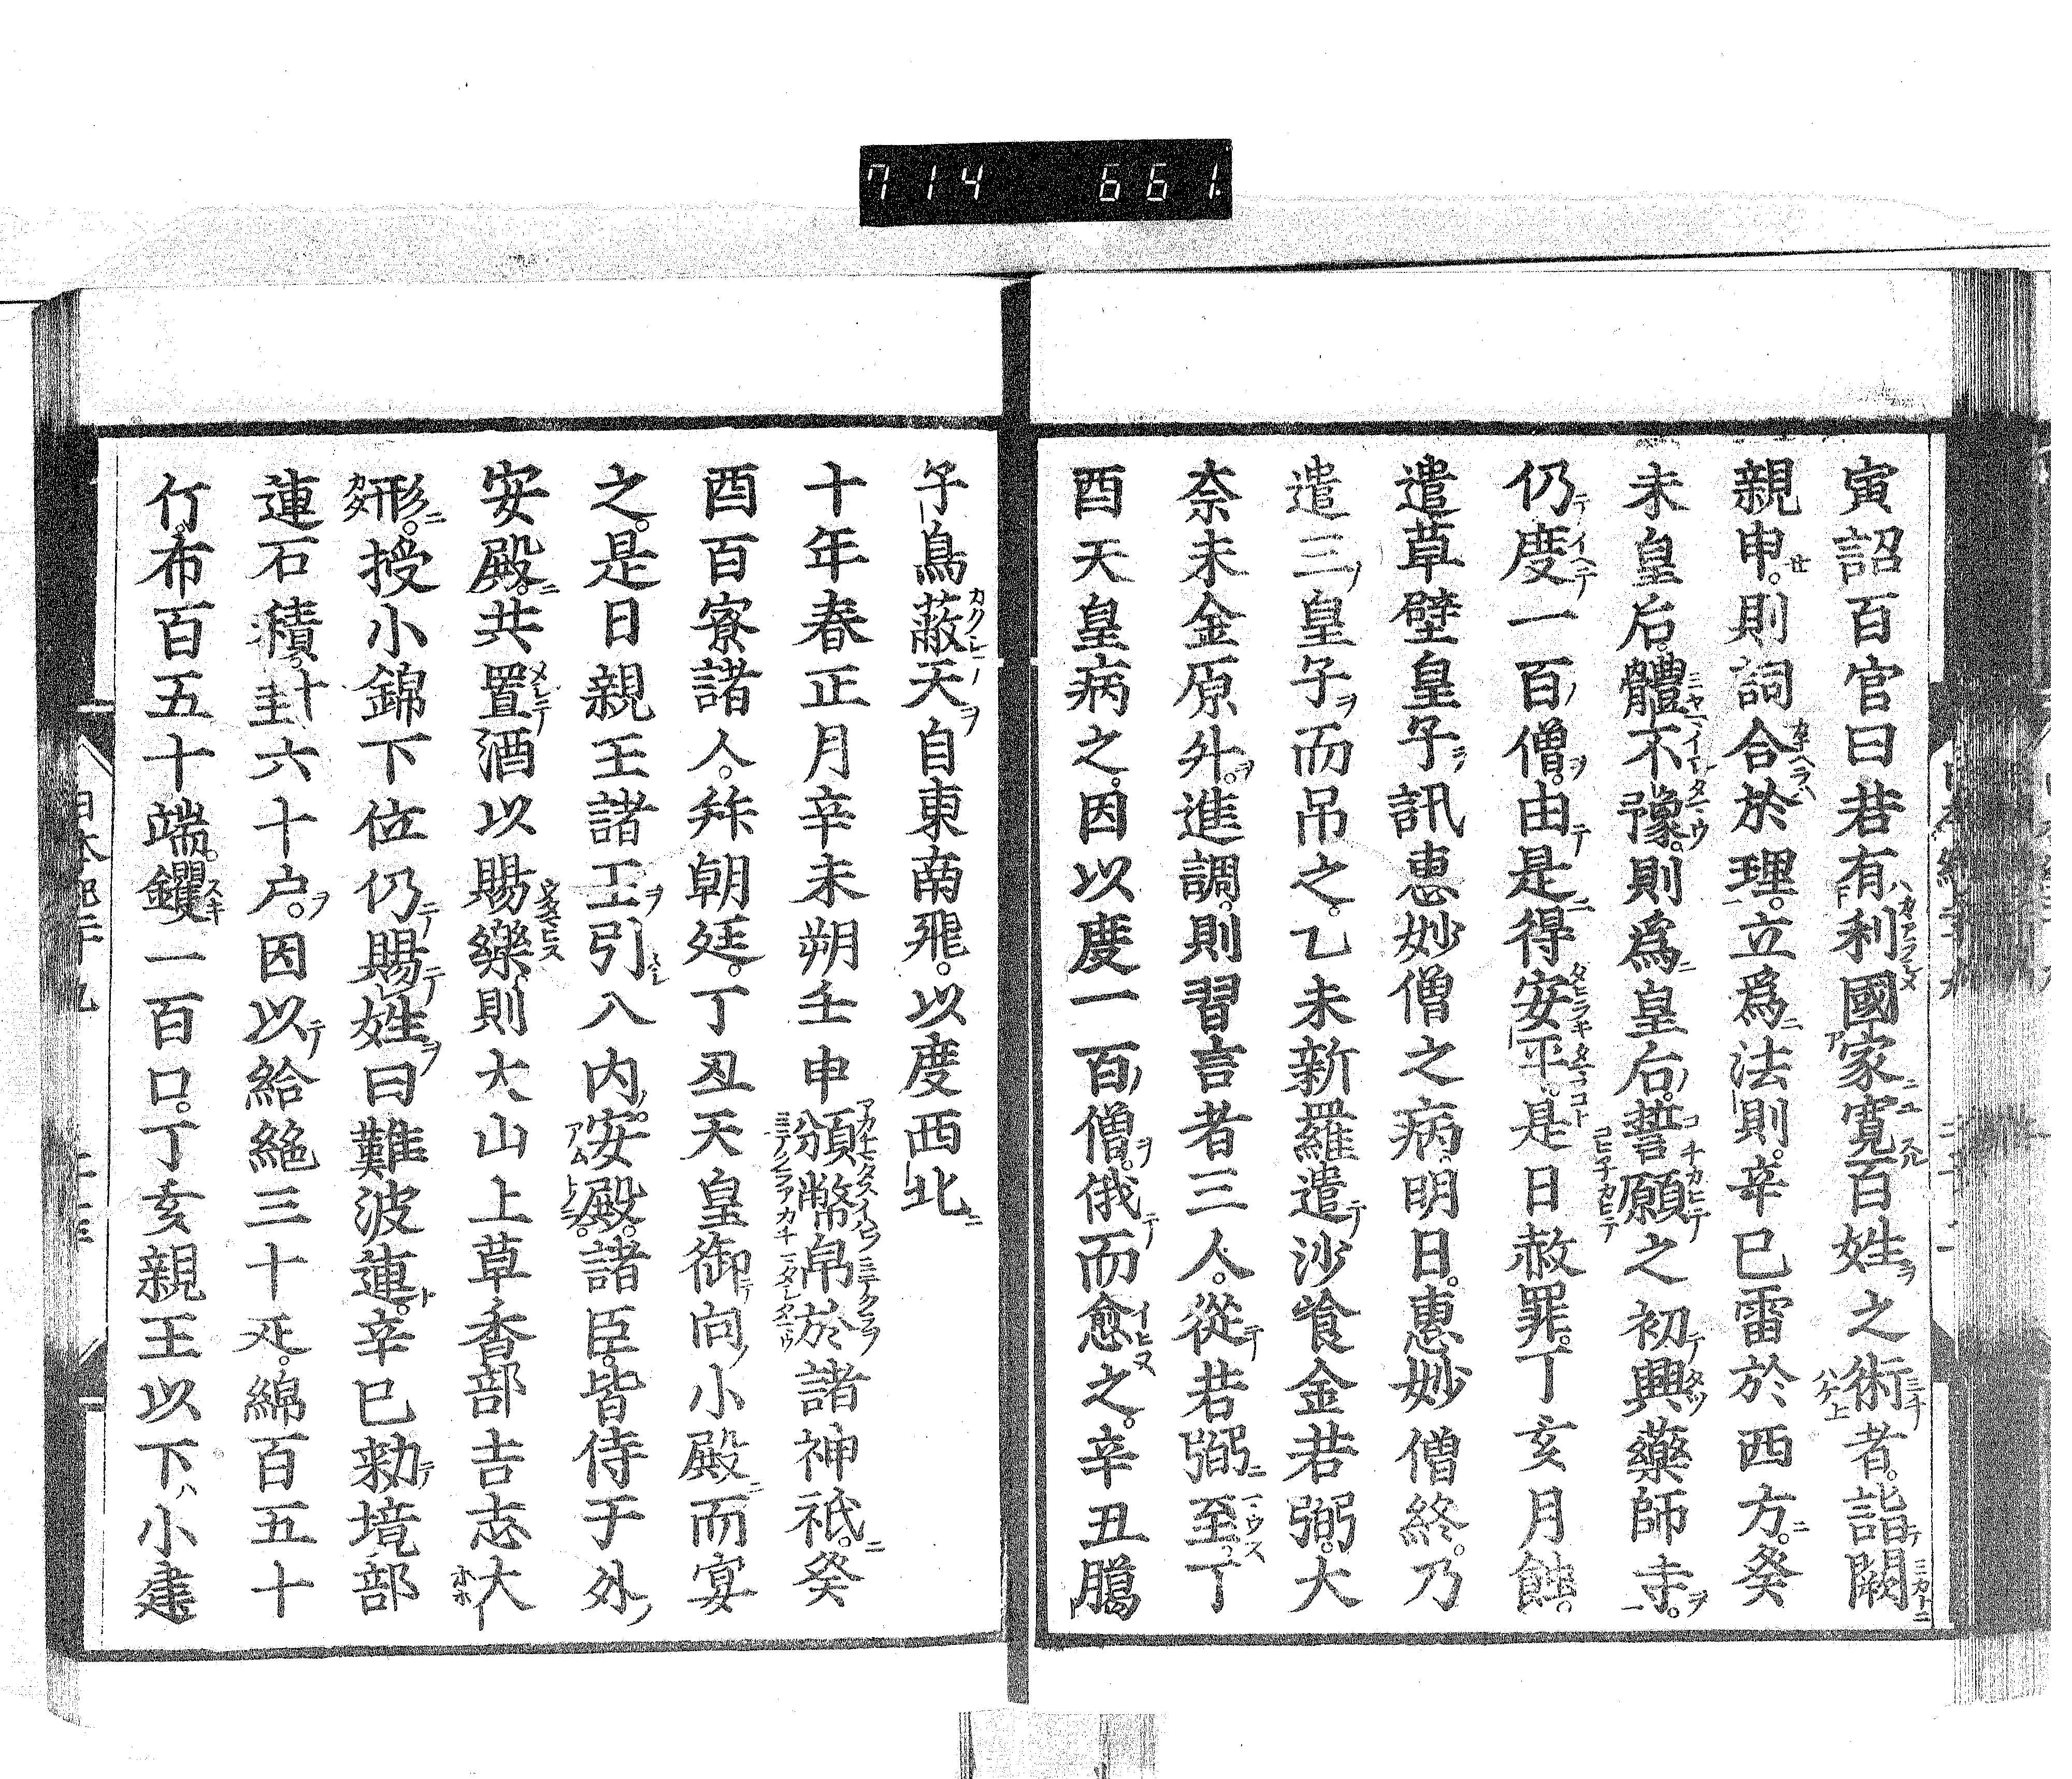 714 661
寅詔百官曰若有利國家寬百姓之術者詣闕
親申則詞合於理立爲法則辛巳雷於西方癸
未皇后體不豫則爲皇后誓願之初興藥師寺
仍度一百僧由是得安平是日赦罪丁亥月蝕
遣草壁皇子訊惠妙僧之病明日惠妙僧終乃
遣三皇子而吊之乙未新羅遣沙飡金若弼大
奈末金原升進調則習言者三人從若弼至丁
酉天皇病之因以度一百僧俄而愈之辛丑臈
子鳥蔽天自東南飛以度西北
十年春正月辛未朔壬申頒幣帛於諸神祇癸
酉百寮諸人拜朝廷丁丑天皇御向小殿而宴
之是日親王諸王引入內安殿諸臣皆侍于外
安殿共置酒以賜樂則大山上草香部吉志大
形授小錦下位仍賜姓曰難波連辛巳勑境部
連石積封六十戶因以給絁三十疋綿百五十
斤布百五十端钁一百口丁亥親王以下小建
日本紀二十九